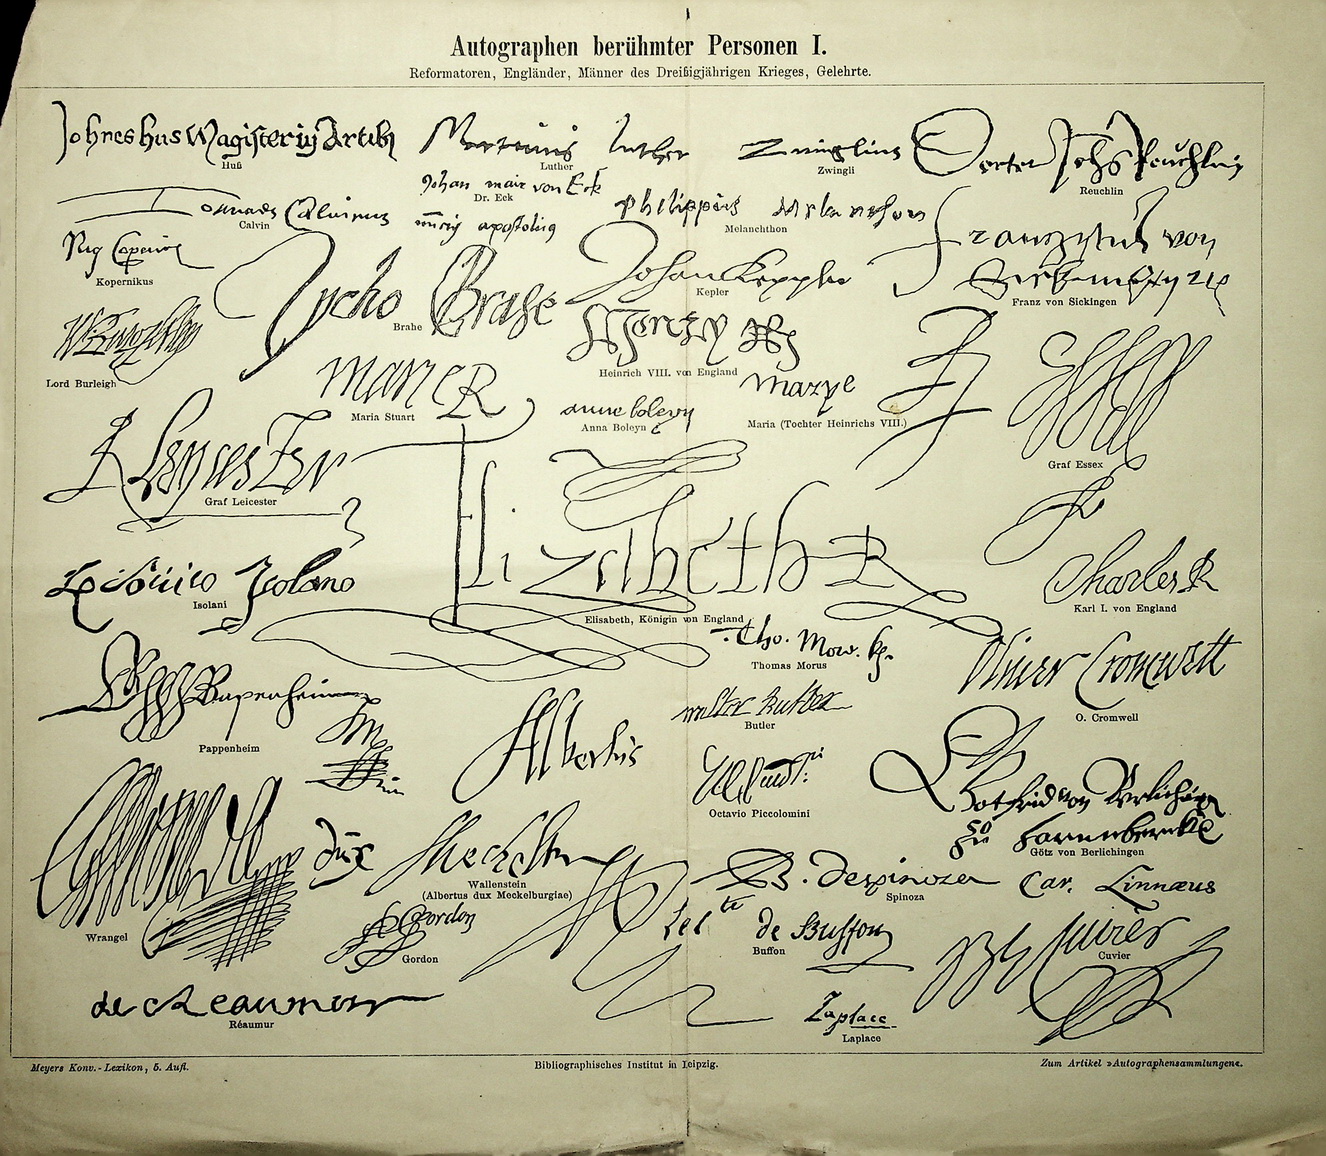 Autographen berühmter Personen I.
Reformatoren, Engländer, Männer des Dreißigjährigen Krieges, Gelehrte.
Johnes hus Magister in Artib
Huß
Martinus Luther
Luther
Zwinglius
Zwingli
Reuchlin
Johan mair von Eck
Dr. Eck
Calvinus
Calvin
Philippus Melanthon
Melanchthon
Franziscus von
Franz von Sickingen
Kopernikus
Tycho Brahe
Brahe
Johan Keppler
Kepler
Lord Burleigh
Henry
Heinrich VIII. von England
Marie R
Maria Stuart
anne boleyn
Anna Boleyn
marye
Maria (Tochter Heinrichs VIII.)
Essex
Graf Essex
R Leycester
Graf Leicester
Elizabeth R
Elisabeth, Königin von England
Charles R
Karl I. von England
Isolano
Isolani
Tho. More. kg.
Thomas Morus
Oliver Cromwell
O. Cromwell
Papenheim
Pappenheim
walter butler
Butler
Albertus
Octavio Piccolomini
Gotfrid von Berlichingen
zu
Götz von Berlichingen
dux
Wallenstein
(Albertus dux Meckelburgiae)
Wrangel
Gordon
Gordon
B. despinoza
Spinoza
Car. Linnæus
le cte de Buffon
Buffon
Cuvier
Cuvier
de Reaumur
Réaumur
Laplace
Laplace
Meyers Konv.-Lexikon, 5. Aufl.
Bibliographisches Institut in Leipzig.
Zum Artikel »Autographensammlungen«.